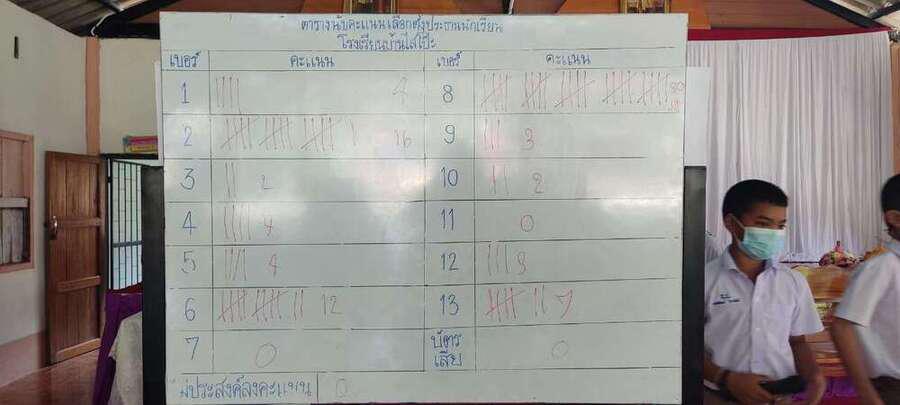 ตารางนับคะแนนเลือกตั้งประธานนักเรียน
โรงเรียนบ้านไสโป๊ะ
เบอร์ คะแนน เบอร์ คะแนน
1 4 8
2 16 9 3
3 2 10 2
4 4 11 0
5 4 12 3
6 12 13 7
7 0 บัตรเสีย 0
ไม่ประสงค์ลงคะแนน 0